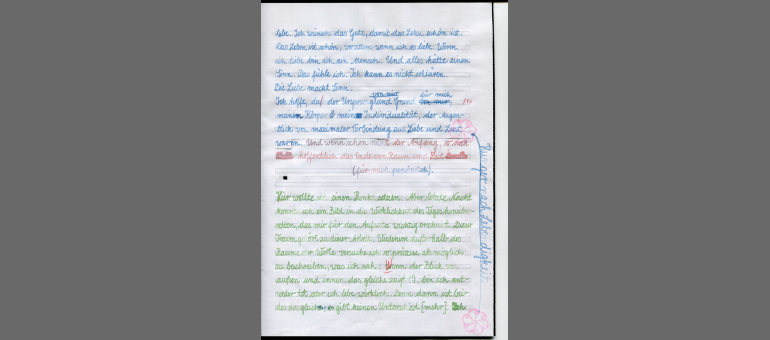 lebe. Ich erinnere das Gute, damit das Leben schön ist.
Das Leben ist schön, vor allem wenn ich es liebe. Wenn
ich liebe bin ich ein Mensch. Und alles hätte einen
Sinn. Das fühle ich. Ich kann es nicht erklären.
Die Liebe macht Sinn.
von mir für mich
Ich hoffe, daß der Ungrund Grund von mir,
meinen Körper & meine Individualität, der Augen-
blick von maximaler Verbindung aus Liebe und Lust
waren. Und wenn schon nicht der Anfang, so doch
hoffentlich das Ende von Raum und Zeit
(für mich persönlich).
Hier wollte ich einen Punkt setzen. Aber letzte Nacht
konnte ich ein Bild in die Wirklichkeit des Tages hinübe-
retten, das mir für den Aufsatz wichtig erscheint. Dieser
Traum gehört zu dieser Arbeit. Wiederum außerhalb des
Raums der Worte versuche ich so präzise als möglich
zu beschreiben, was ich sah: Wenn der Blick von
außen und innen das gleiche zeigt (), bin ich ent-
weder tot oder ich lebe wirklich. Denn dann ist bei-
des das gleiche, es gibt keinen Unterschied [mehr]. Ich
nach